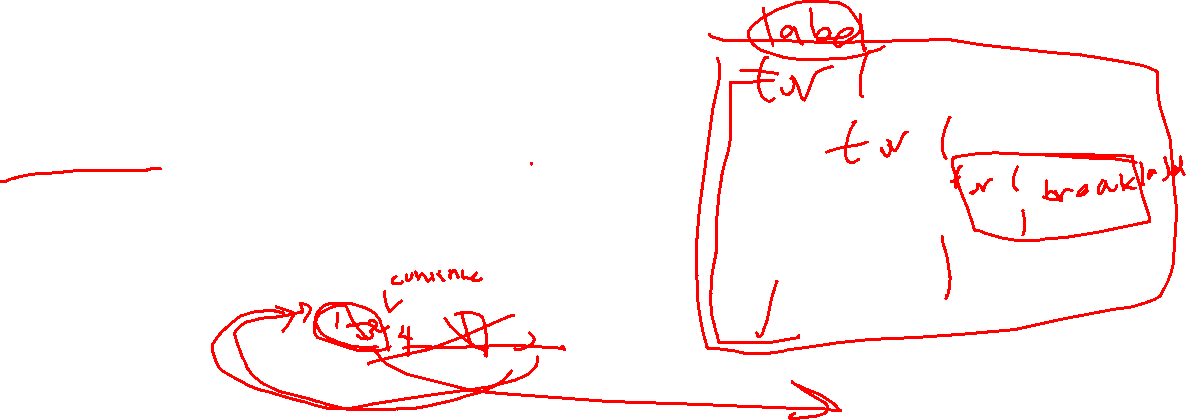 label
for (
for (
for ( break label
)
)
continue
1 2 3 4